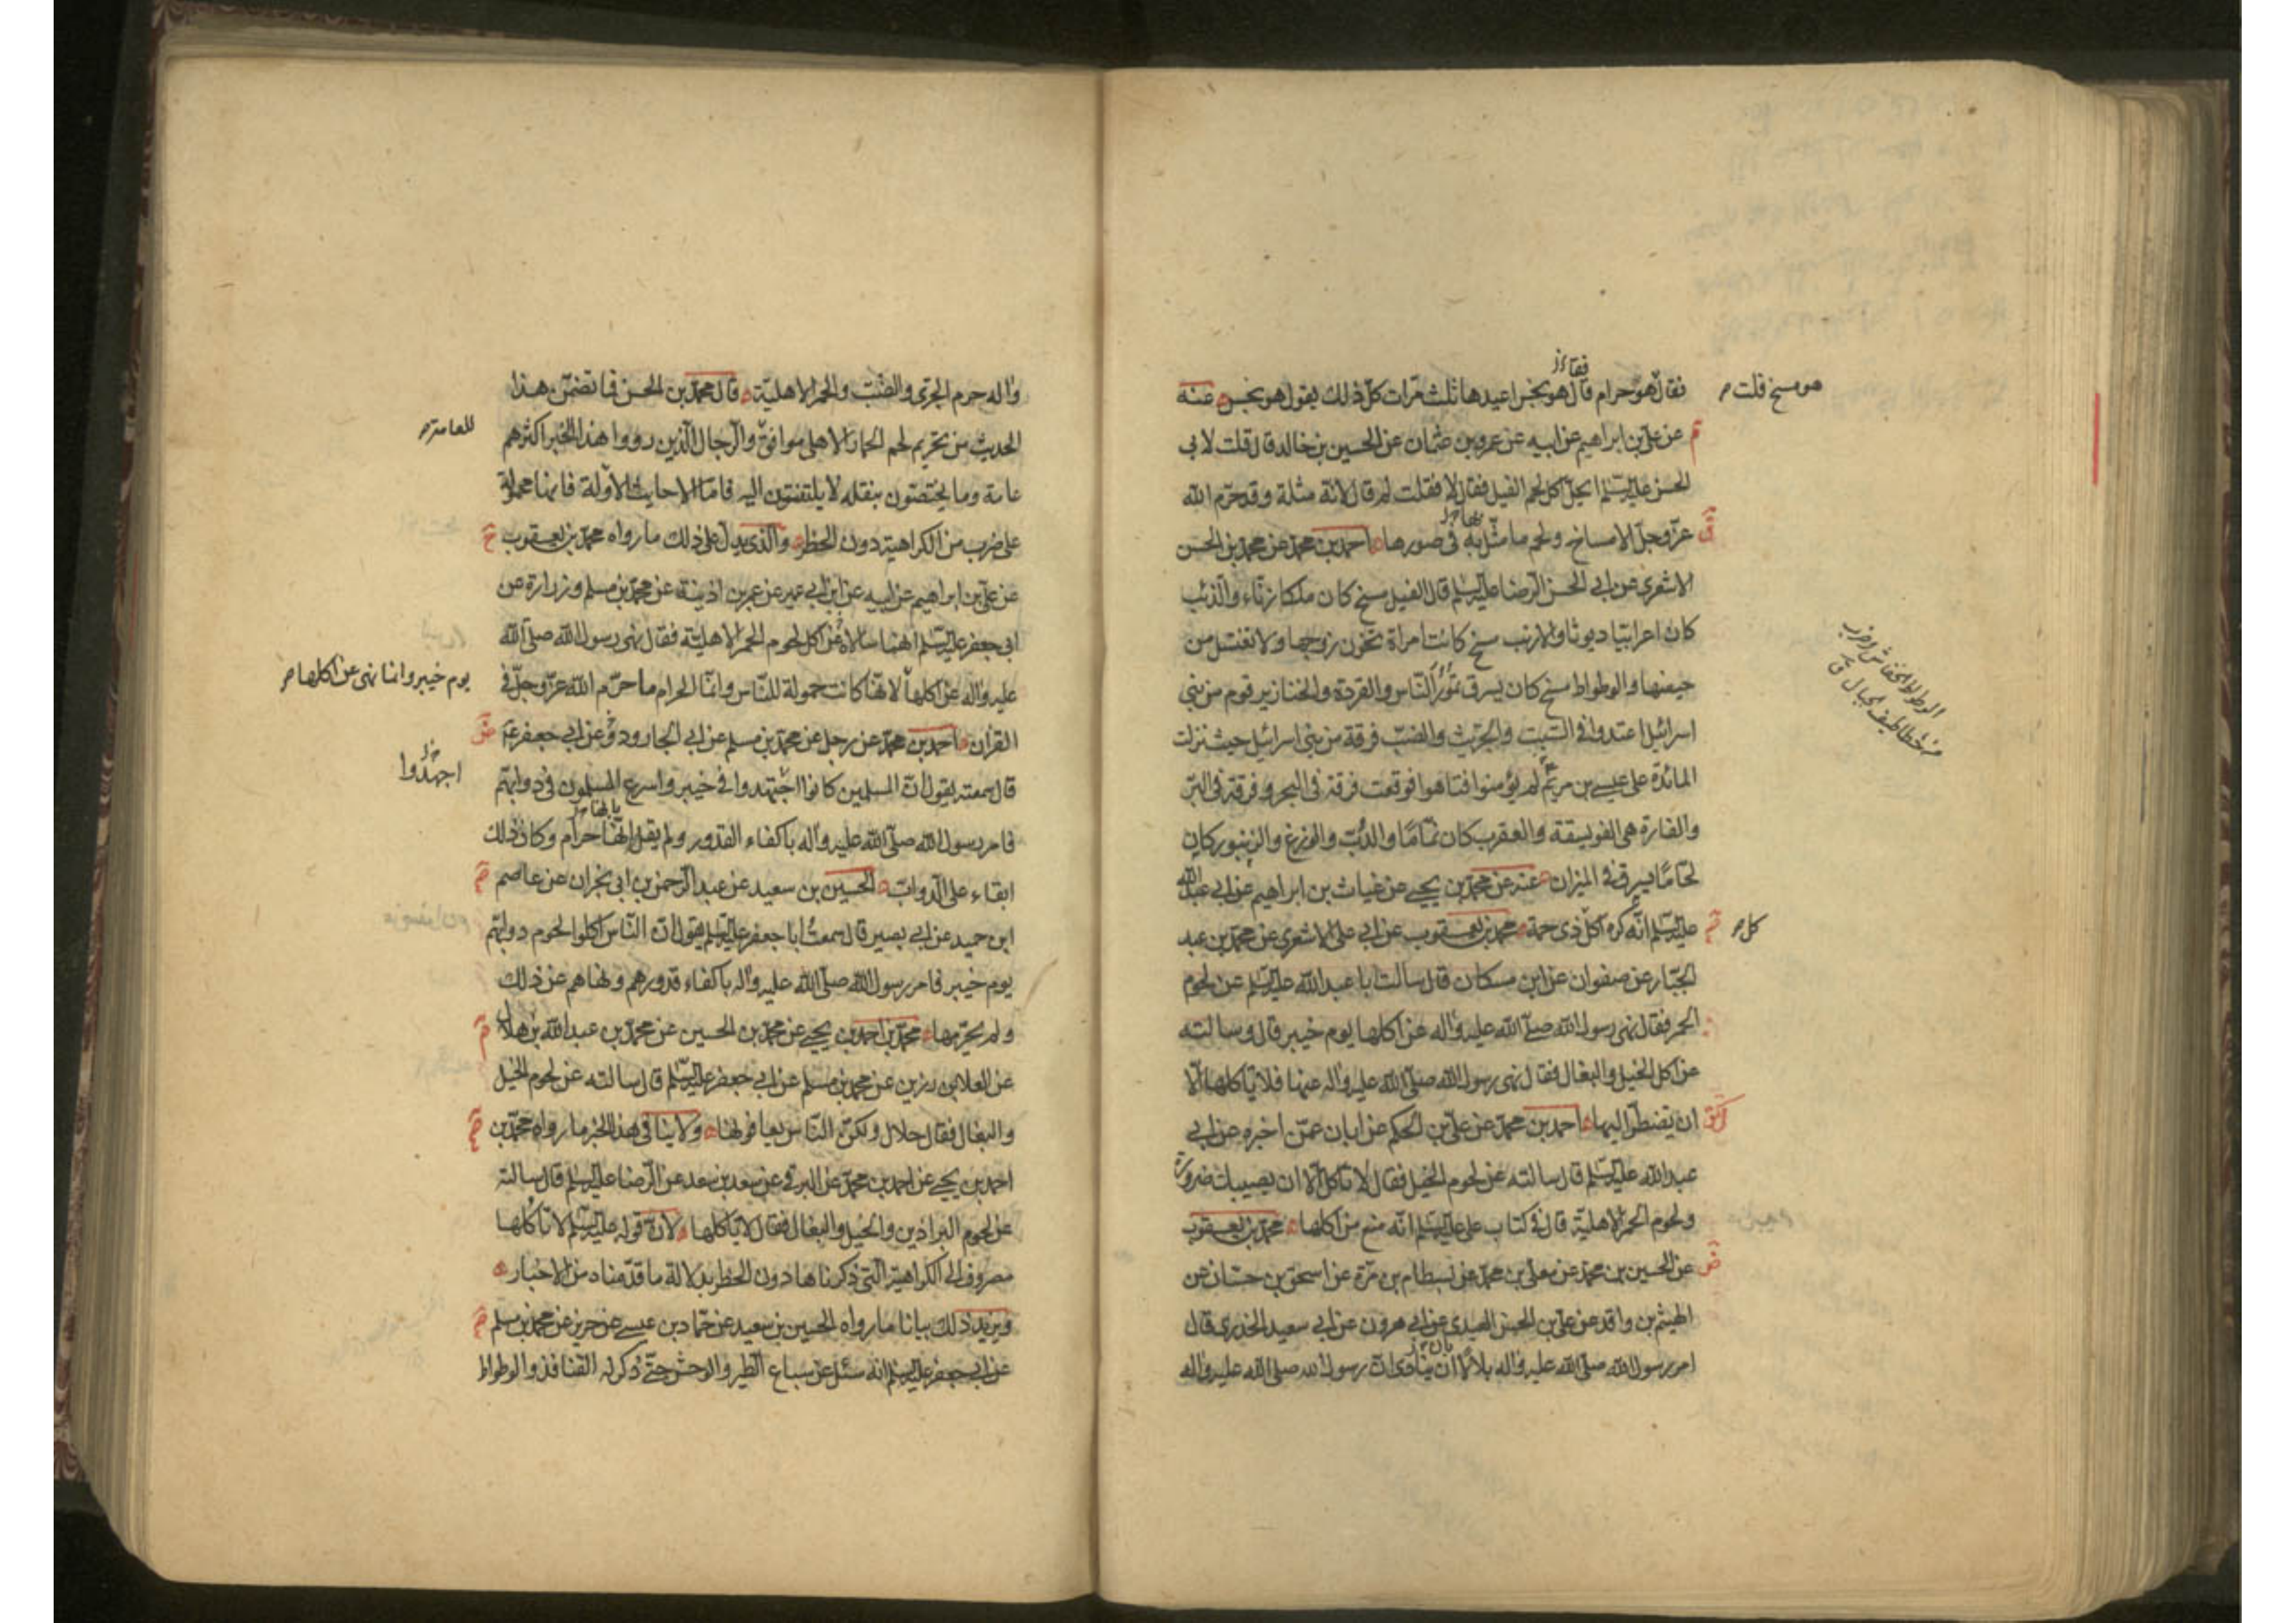 فقال هو حرام قال هو نجس اعيدها ثلث مرات كل ذلك يقول هو نجس عنه
هو مسخ قلت
عن علي بن ابراهيم عن ابيه عن عمرو بن عثمان عن الحسين بن خالد قال قلت لابي
الحسن عليه السلم ايحل اكل لحم الفيل فقال لا فقلت لم قال لانه مثلة وقد حرم الله
عز وجل الامساخ ولحم ما مثل به في صورها احمد بن محمد عن محمد بن الحسن
الاشعري عن ابي الحسن الرضا عليه السلم قال الفيل مسخ كان ملكا زناء والذئب
كان اعرابيا ديوثا والارنب مسخ كانت امراة تخون زوجها ولا تغتسل من
حيضها والوطواط مسخ كان يسرق تمور الناس والقردة والخنازير قوم من بني
الوطواط الخفاش وضرب
من خطاطيف الجبال ق
اسرائيل اعتدوا في السبت والجريث والضب فرقة من بني اسرائيل حيث نزلت
المائدة على عيسى بن مريم لم يؤمنوا فتاهوا فوقعت فرقة في البحر وفرقة في البر
والفارة هي الفويسقة والعقرب كان نماما والدب والوزغ والزنبور كان
لحاما يسرق في الميزان عنه عن محمد بن يحيى عن غياث بن ابراهيم عن ابي عبد الله
عليه السلم انه كره اكل ذي حمة محمد بن يعقوب عن ابي علي الاشعري عن محمد بن عبد
كل
الجبار عن صفوان عن ابن مسكان قال سالت ابا عبد الله عليه السلم عن لحوم
الحمر فقال نهى رسول الله صلى الله عليه واله عن اكلها يوم خيبر قال وسالته
عن اكل الخيل والبغال فقال نهى رسول الله صلى الله عليه واله عنها فلا تاكلها الا
ان تضطر اليها احمد بن محمد عن علي بن الحكم عن ابان عمن اخبره عن ابي
عبد الله عليه السلم قال سالته عن لحوم الخيل فقال لا تاكل الا ان يصيبك ضرورة
ولحوم الحمر الاهلية قال في كتاب علي عليه السلم انه منع من اكلها محمد بن يعقوب
عن الحسين بن محمد عن معلى بن محمد عن بسطام بن مرة عن اسحق بن حسان عن
الهيثم بن واقد عن علي بن الحسن العبدي عن ابي هرون عن ابي سعيد الخدري قال
امر رسول الله صلى الله عليه واله بلالا ان ينادي ان رسول الله صلى الله عليه واله
واله حرم الجري والضب والحمر الاهلية قال محمد بن الحسن فما تضمن هذا
الحديث من تحريم لحم الحمار الاهلي موافق والرجال الذين رووا هذا الخبر اكثرهم
للعامة
عامة وما يختصون بنقله لا يلتفتون اليه فاما الاحاديث الاولة فانما محمولة
على ضرب من الكراهية دون الحظر والذي يدل على ذلك ما رواه محمد بن يعقوب
عن علي بن ابراهيم عن ابيه عن ابن ابي عمير عن عمر بن اذينة عن محمد بن مسلم وزرارة عن
ابي جعفر عليه السلم انهما سالاه عن اكل لحوم الحمر الاهلية فقال نهى رسول الله صلى الله
عليه واله عن اكلها لانها كانت حمولة للناس وانما الحرام ما حرم الله عز وجل في
يوم خيبر وانما نهى عن اكلها
القران احمد بن محمد عن رجل عن محمد بن مسلم عن ابي الجارود عن ابي جعفر ع
قال سمعته يقول ان المسلمين كانوا اجتهدوا في خيبر واسرع المسلمون في دوابهم
اجهدوا
فامر رسول الله صلى الله عليه واله باكفاء القدور ولم يقل انها حرام وكان ذلك
ابقاء على الدواب الحسين بن سعيد عن عبد الرحمن بن ابي نجران عن عاصم
ابن حميد عن ابي بصير قال سمعت ابا جعفر عليه السلم يقول ان الناس اكلوا لحوم دوابهم
يوم خيبر فامر رسول الله صلى الله عليه واله باكفاء قدورهم ونهاهم عن ذلك
ولم يحرمها محمد بن احمد بن يحيى عن محمد بن الحسين عن محمد بن عبد الله بن هلال
عن العلا بن رزين عن محمد بن مسلم عن ابي جعفر عليه السلم قال سالته عن لحوم الخيل
والبغال فقال حلال ولكن الناس يعافونها ولا ينافي هذا الخبر ما رواه محمد بن
احمد بن يحيى عن احمد بن محمد عن البرقي عن سعد بن سعد عن الرضا عليه السلم قال سالته
عن لحوم البراذين والخيل والبغال فقال لا تاكلها لان قوله عليه السلم لا تاكلها
مصروف الى الكراهية التي ذكرناها دون الحظر بدلالة ما قدمناه من الاخبار
ويزيد ذلك بيانا ما رواه الحسين بن سعيد عن حماد بن عيسى عن حريز عن محمد بن مسلم
عن ابي جعفر عليه السلم انه سئل عن سباع الطير والوحش حتى ذكر له القنافذ والوطواط